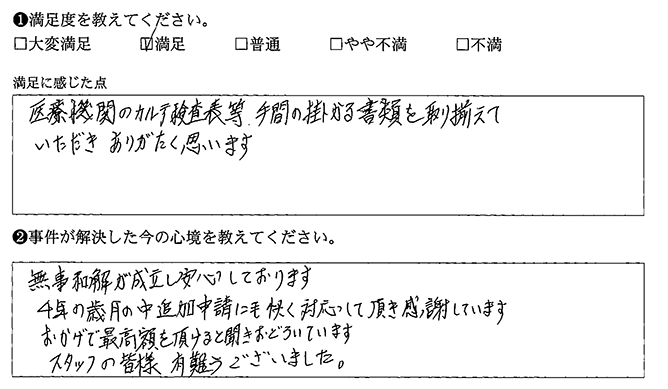 ❶満足度を教えてください。
□大変満足 ☑満足 □普通 □やや不満 □不満
満足に感じた点
医療機関のカルテ検査表等、手間の掛かる書類を取り揃えて
いただき ありがたく思います
❷事件が解決した今の心境を教えてください。
無事和解が成立し安心しております
4年の歳月の中追加申請にも快く対応して頂き感謝しています
おかげで最高額を頂けると聞きおどろいています
スタッフの皆様 有難うございました。